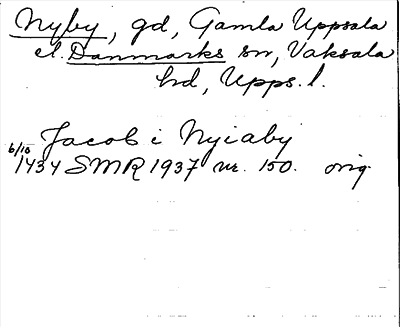 Nyby, gd, Gamla Uppsala
el. Danmarks sn, Vaksala
hd, Upps. l.
Jacob i Nyiaby
6/10 1434 SMR 1937 nr. 150. orig.